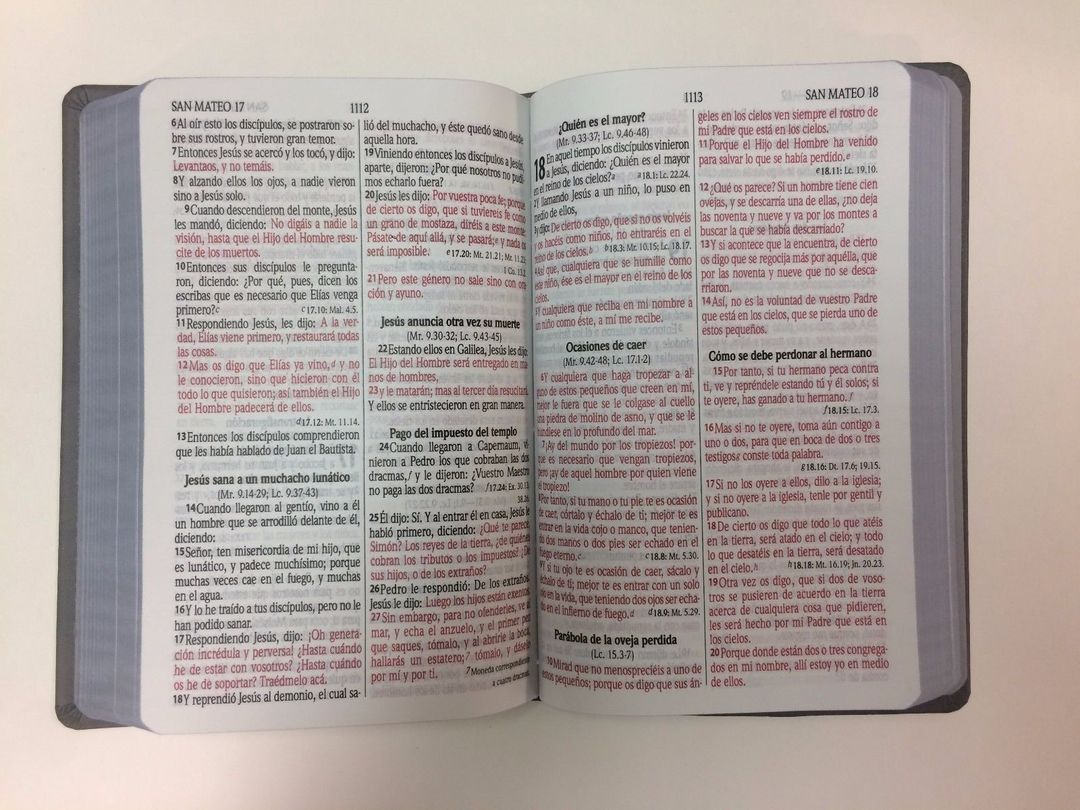 SAN MATEO 17
1112
6Al oír esto los discípulos, se postraron so-
bre sus rostros, y tuvieron gran temor.
7Entonces Jesús se acercó y los tocó, y dijo:
Levantaos, y no temáis.
8Y alzando ellos los ojos, a nadie vieron
sino a Jesús solo.
9Cuando descendieron del monte, Jesús
les mandó, diciendo: No digáis a nadie la
visión, hasta que el Hijo del Hombre resu-
cite de los muertos.
10Entonces sus discípulos le pregunta-
ron, diciendo: ¿Por qué, pues, dicen los
escribas que es necesario que Elías venga
primero?c
c17.10: Mal. 4.5.
11Respondiendo Jesús, les dijo: A la ver-
dad, Elías viene primero, y restaurará todas
las cosas.
12Mas os digo que Elías ya vino,d y no
le conocieron, sino que hicieron con él
todo lo que quisieron; así también el Hijo
del Hombre padecerá de ellos.
d17.12: Mt. 11.14.
13Entonces los discípulos comprendieron
que les había hablado de Juan el Bautista.
Jesús sana a un muchacho lunático
(Mr. 9.14-29; Lc. 9.37-43)
14Cuando llegaron al gentío, vino a él
un hombre que se arrodilló delante de él,
diciendo:
15Señor, ten misericordia de mi hijo, que
es lunático, y padece muchísimo; porque
muchas veces cae en el fuego, y muchas
en el agua.
16Y lo he traído a tus discípulos, pero no le
han podido sanar.
17Respondiendo Jesús, dijo: ¡Oh genera-
ción incrédula y perversa! ¿Hasta cuándo
he de estar con vosotros? ¿Hasta cuándo
os he de soportar? Traédmelo acá.
18Y reprendió Jesús al demonio, el cual sa-
lió del muchacho, y éste quedó sano desde
aquella hora.
19Viniendo entonces los discípulos a Jesús,
aparte, dijeron: ¿Por qué nosotros no pudi-
mos echarlo fuera?
20Jesús les dijo: Por vuestra poca fe; porque
de cierto os digo, que si tuviereis fe como
un grano de mostaza, diréis a este monte:
Pásate de aquí allá, y se pasará;e y nada os
será imposible.
e17.20: Mt. 21.21; Mr. 11.23;
1 Co. 13.2.
21Pero este género no sale sino con ora-
ción y ayuno.
Jesús anuncia otra vez su muerte
(Mr. 9.30-32; Lc. 9.43-45)
22Estando ellos en Galilea, Jesús les dijo:
El Hijo del Hombre será entregado en ma-
nos de hombres,
23y le matarán; mas al tercer día resucitará.
Y ellos se entristecieron en gran manera.
Pago del impuesto del templo
24Cuando llegaron a Capernaum, vi-
nieron a Pedro los que cobraban las dos
dracmas,f y le dijeron: ¿Vuestro Maestro
no paga las dos dracmas?
f17.24: Ex. 30.13;
38.26.
25Él dijo: Sí. Y al entrar él en casa, Jesús le
habló primero, diciendo: ¿Qué te parece,
Simón? Los reyes de la tierra, ¿de quiénes
cobran los tributos o los impuestos? ¿De
sus hijos, o de los extraños?
26Pedro le respondió: De los extraños.
Jesús le dijo: Luego los hijos están exentos.
27Sin embargo, para no ofenderles, ve al
mar, y echa el anzuelo, y el primer pez
que saques, tómalo, y al abrirle la boca,
hallarás un estatero;7 tómalo, y dáselo
por mí y por ti.
7 Moneda correspondiente
a cuatro dracmas.
1113
SAN MATEO 18
¿Quién es el mayor?
(Mr. 9.33-37; Lc. 9.46-48)
18En aquel tiempo los discípulos vinieron
a Jesús, diciendo: ¿Quién es el mayor
en el reino de los cielos?a
a18.1: Lc. 22.24.
2Y llamando Jesús a un niño, lo puso en
medio de ellos,
3y dijo: De cierto os digo, que si no os volvéis
y os hacéis como niños, no entraréis en el
reino de los cielos.b
b18.3: Mr. 10.15; Lc. 18.17.
4Así que, cualquiera que se humille como
este niño, ése es el mayor en el reino de los
cielos.
5Y cualquiera que reciba en mi nombre a
un niño como éste, a mí me recibe.
Ocasiones de caer
(Mr. 9.42-48; Lc. 17.1-2)
6Y cualquiera que haga tropezar a al-
guno de estos pequeños que creen en mí,
mejor le fuera que se le colgase al cuello
una piedra de molino de asno, y que se le
hundiese en lo profundo del mar.
7¡Ay del mundo por los tropiezos! por-
que es necesario que vengan tropiezos,
pero ¡ay de aquel hombre por quien viene
el tropiezo!
8Por tanto, si tu mano o tu pie te es ocasión
de caer, córtalo y échalo de ti; mejor te es
entrar en la vida cojo o manco, que tenien-
do dos manos o dos pies ser echado en el
fuego eterno.c
c18.8: Mt. 5.30.
9Y si tu ojo te es ocasión de caer, sácalo y
échalo de ti; mejor te es entrar con un solo
ojo en la vida, que teniendo dos ojos ser echa-
do en el infierno de fuego.d
d18.9: Mt. 5.29.
Parábola de la oveja perdida
(Lc. 15.3-7)
10Mirad que no menospreciéis a uno de
estos pequeños; porque os digo que sus án-
geles en los cielos ven siempre el rostro de
mi Padre que está en los cielos.
11Porque el Hijo del Hombre ha venido
para salvar lo que se había perdido.e
e18.11: Lc. 19.10.
12¿Qué os parece? Si un hombre tiene cien
ovejas, y se descarría una de ellas, ¿no deja
las noventa y nueve y va por los montes a
buscar la que se había descarriado?
13Y si acontece que la encuentra, de cierto
os digo que se regocija más por aquélla, que
por las noventa y nueve que no se desca-
rriaron.
14Así, no es la voluntad de vuestro Padre
que está en los cielos, que se pierda uno de
estos pequeños.
Cómo se debe perdonar al hermano
15Por tanto, si tu hermano peca contra
ti, ve y repréndele estando tú y él solos; si
te oyere, has ganado a tu hermano.f
f18.15: Lc. 17.3.
16Mas si no te oyere, toma aún contigo a
uno o dos, para que en boca de dos o tres
testigosg conste toda palabra.
g18.16: Dt. 17.6; 19.15.
17Si no los oyere a ellos, dilo a la iglesia;
y si no oyere a la iglesia, tenle por gentil y
publicano.
18De cierto os digo que todo lo que atéis
en la tierra, será atado en el cielo; y todo
lo que desatéis en la tierra, será desatado
en el cielo.h
h18.18: Mt. 16.19; Jn. 20.23.
19Otra vez os digo, que si dos de voso-
tros se pusieren de acuerdo en la tierra
acerca de cualquiera cosa que pidieren,
les será hecho por mi Padre que está en
los cielos.
20Porque donde están dos o tres congrega-
dos en mi nombre, allí estoy yo en medio
de ellos.